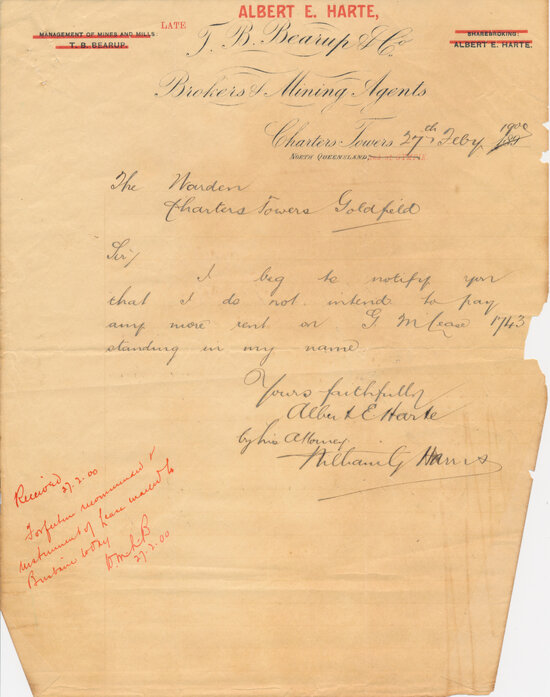 ALBERT E. HARTE,
LATE
MANAGEMENT OF MINES AND MILLS:
T. B. BEARUP.
T. B. Bearup & Co
SHAREBROKING:
ALBERT E. HARTE.
Brokers & Mining Agents
Charters Towers 27th Feby. 1900
NORTH QUEENSLAND,
The Warden
Charters Towers Goldfield
Sir/
I beg to notify you
that I do not intend to pay
any more rent on G M Lease 1743
standing in my name
Yours faithfully
Albert E Harte
by his Attorney
William G Harris
Received
27.2.00
Forfeiture recommended &
instrument of lease
Brisbane today
27.2.00